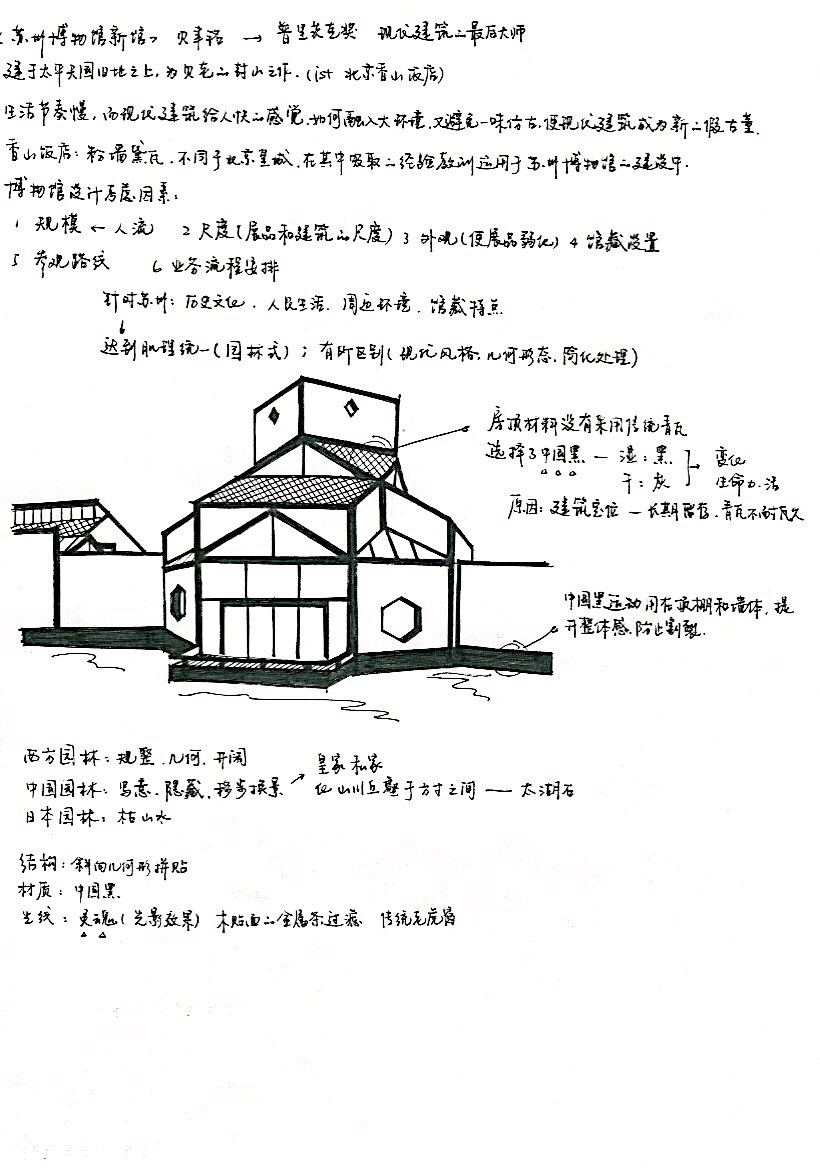 《苏州博物馆新馆》 贝聿铭 → 普里兹克奖 现代建筑的最后大师
建于太平天国旧地之上,为贝老的封山之作.(1st 北京香山饭店)
生活节奏慢,而现代建筑给人快的感觉,如何融入大环境,又避免一味仿古,使现代建筑成为新的假古董.
香山饭店:粉墙黛瓦,不同于北京皇城,在其中吸取的经验教训运用于苏州博物馆的建设中.
博物馆设计考虑因素:
1 规模 ← 人流 2 尺度(展品和建筑的尺度) 3 外观(使展品弱化) 4 馆藏设置
5 参观路线 6 业务流程安排
针对苏州:历史文化.人民生活.周边环境.馆藏特点
达到肌理统一(园林式);有所区别(现代风格.几何形态.简化处理)
房顶材料没有采用传统青瓦
选择了中国黑 — 湿:黑 → 变化
干:灰 生命力.活
原因:建筑定位 — 长期留存.青瓦不耐瓦久
中国黑运动用在顶棚和墙体,提
升整体感.防止割裂.
西方园林:规整.几何.开阔
皇家 私家
中国园林:写意.隐藏.移步换景 ↗ 化山川丘壑于方寸之间 — 太湖石
日本园林:枯山水
结构:斜向几何形拼贴
材质:中国黑
光线:灵魂(光影效果) 木贴面的金属条过滤 传统老虎窗